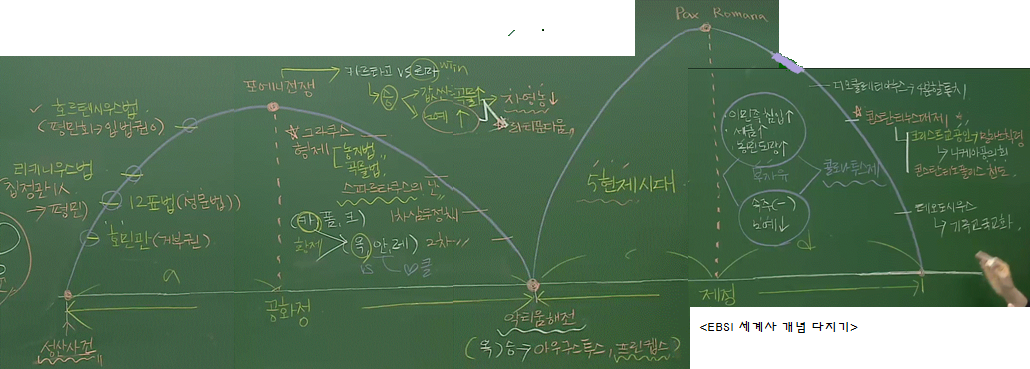 Pax Romana
포에니전쟁
카르타고 vs 로마 win
승
값싼 곡물↑
노예 ↑
자영농↓
라티푼디움
호르텐시우스법
(평민회→입법권O)
리키니우스법
(집정관1人
→ 평민)
12표법(성문법)
호민관(거부권)
그라쿠스
형제
농지법
곡물법
스파르타쿠스의 난
(카, 폴, 크) 1차 삼두정치
황제
(옥, 안, 레) 2차 〃
vs ♡클
5현제시대
이민족침입↑
세금↑
농민도망↑
부자유
속주(-)
노예↓
콜로나투스제
디오클레티아누스→4분할통치
콘스탄티누스대제
크리스트교공인→밀라노칙령
↳ 니케아공의회
콘스탄티노폴리스 천도
테오도시우스
↳ 기독교국교화
a
c
d
공화정
제정
성산사건
악티움해전
(옥)승→아우구스투스, 프린켑스)
<EBSI 세계사 개념 다지기>